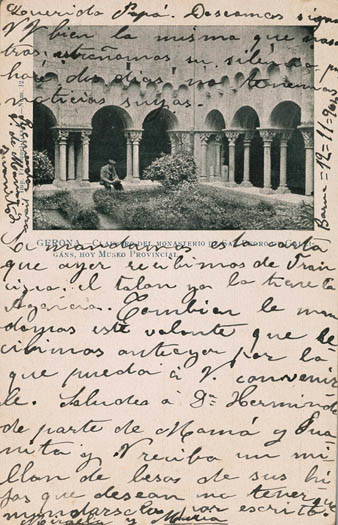 Querido Papá. Deseamos sigue
V bien la misma que noso
tras, extrañamos su silencio p
hace dos dias no tenemos
noticias suyas.
GERONA.—CLAUSTRO DEL MONASTERIO DE SAN PEDRO DE GALLI-
GÁNS, HOY MUSEO PROVINCIAL
Barna = 12 = 11 = 902
que ayer recibimos de Fran
cisca. El talon ya lo tiene la
Agencia. Tambien le man
damos este volante que re
cibimos anteayer por lo
que pueda á V. convenir
le. Saludos á Dª Herminia
de parte de Mamá y Jua
nita y V reciba un mi
llon de besos de sus hi
jas que desean no tener que
mandarselos por escrito
y Maria